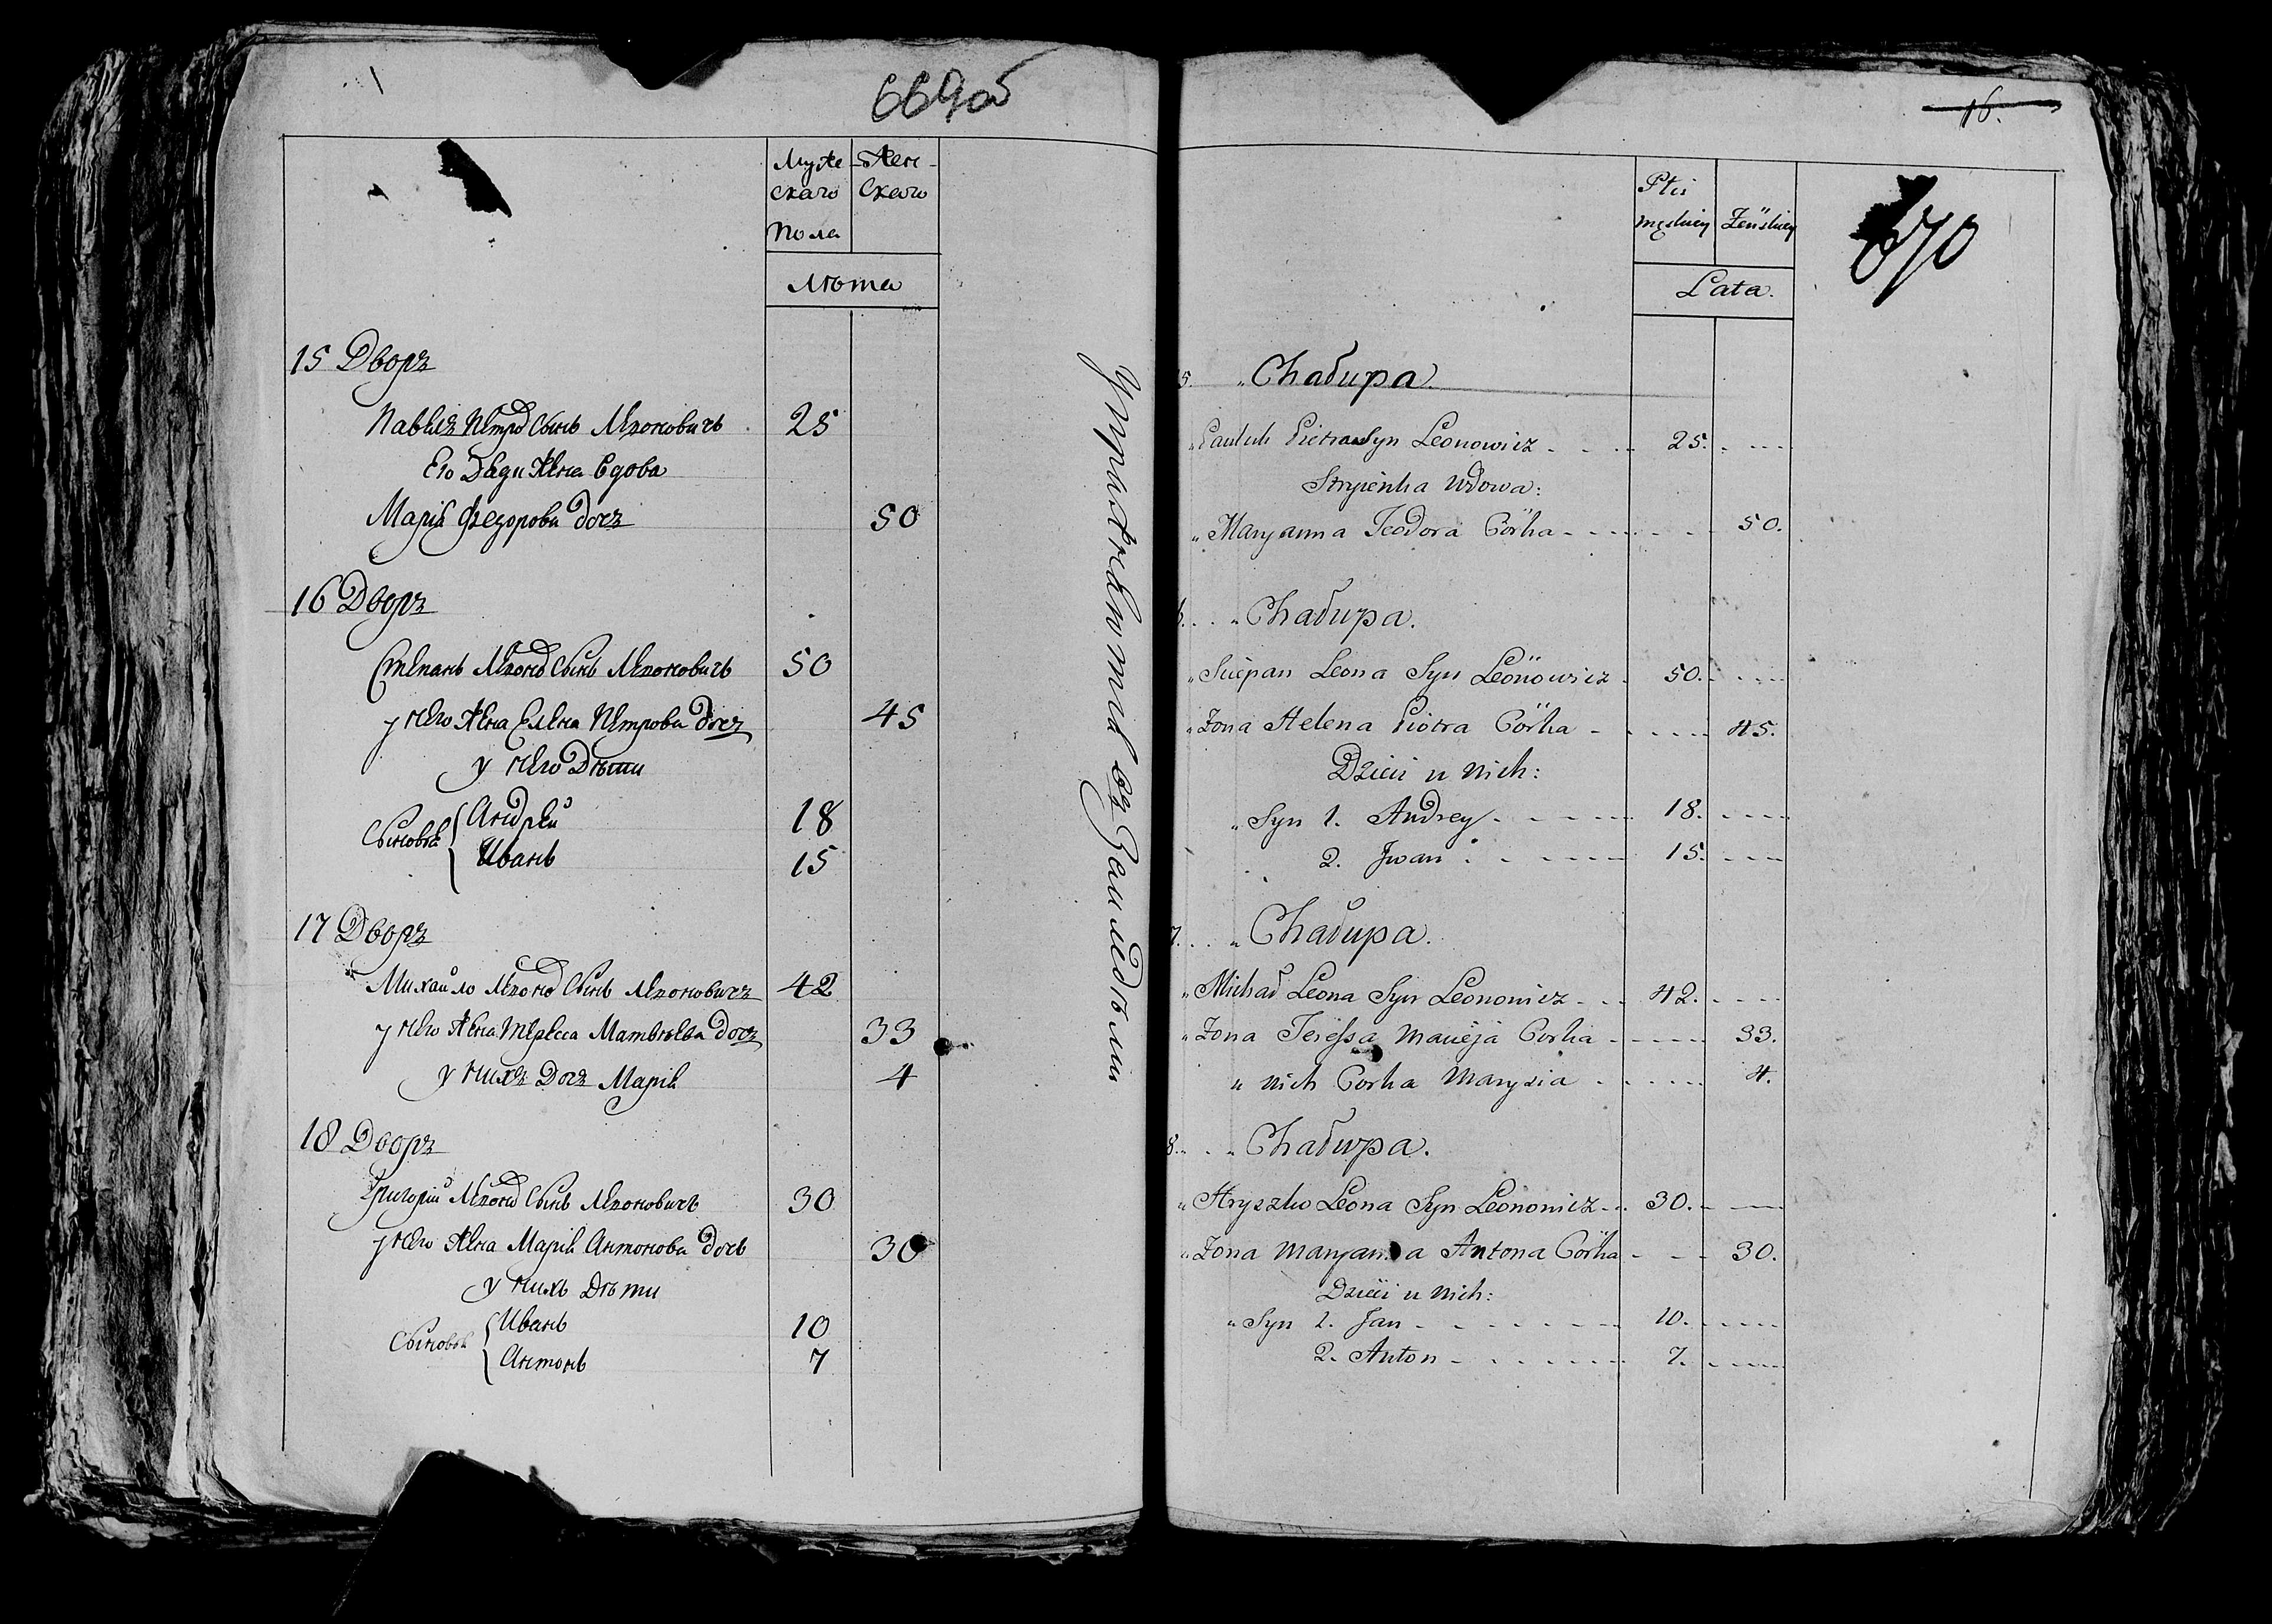 669 об
Муже
скаго
Пола
Жен-
скаго
Лѣта
15 Дворъ
Павелъ Петра Сынъ Леоновичъ 25
Его Дяди Жена Вдова
Марія Федорова дочъ 50
16 Дворъ
Степанъ Леона Сынъ Леоновичъ 50
у него Жена Елена Петрова дочъ 45
у него Дѣти
Сыновья { Андрей 18
Иванъ 15
17 Дворъ
Михайло Леона Сынъ Леоновичъ 42
у него Жена Тересса Матвѣева дочъ 33
у нихъ Дочъ Марія 4
18 Дворъ
Григорій Леона Сынъ Леоновичъ 30
у него Жена Марія Антонова дочь 30
у нихъ Дѣти
Сыновья { Иванъ 10
Антонъ 7
16.
670
Płci
męskiey
Żeńskiey
Lata.
5. " Chałupa.
" Pauluk Pietra Syn Leonowicz 25.
Stryienka Wdowa:
" Maryanna Teodora Córka 50.
6. " Chałupa.
" Sciepan Leona Syn Leönowicz 50.
" Żona Helena Piotra Córka 45.
Dzieci u nich:
" Syn 1. Andrey 18.
2. Jwan 15.
7. " Chałupa.
" Michał Leona Syn Leonowicz 42.
" Żona Teressa Macieja Corka 33.
u nich Corka Marysia 4.
8. " Chałupa.
" Hryszko Leona Syn Leonowicz 30.
" Żona Maryanna Antona Córka 30.
Dzieci u nich:
" Syn 1. Jan 10.
2. Anton 7.